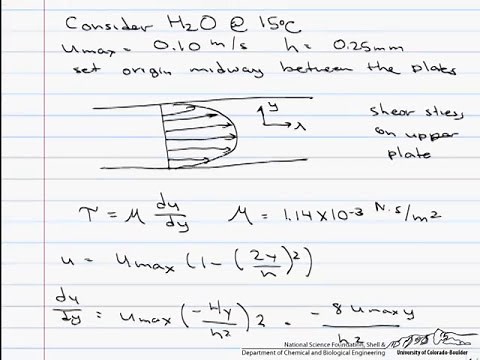 Consider H2O @ 15°C
umax = 0.10 m/s h = 0.25mm
set origin midway between the plates
y
x
shear stress
on upper
plate
τ = μ du/dy μ = 1.14 x 10-3 N.s/m2
u = umax (1 - (2y/h)2)
du/dy = umax (-4y/h2) 2 = -8 umax y/h2
National Science Foundation, Shell &
Department of Chemical and Biological Engineering
University of Colorado-Boulder